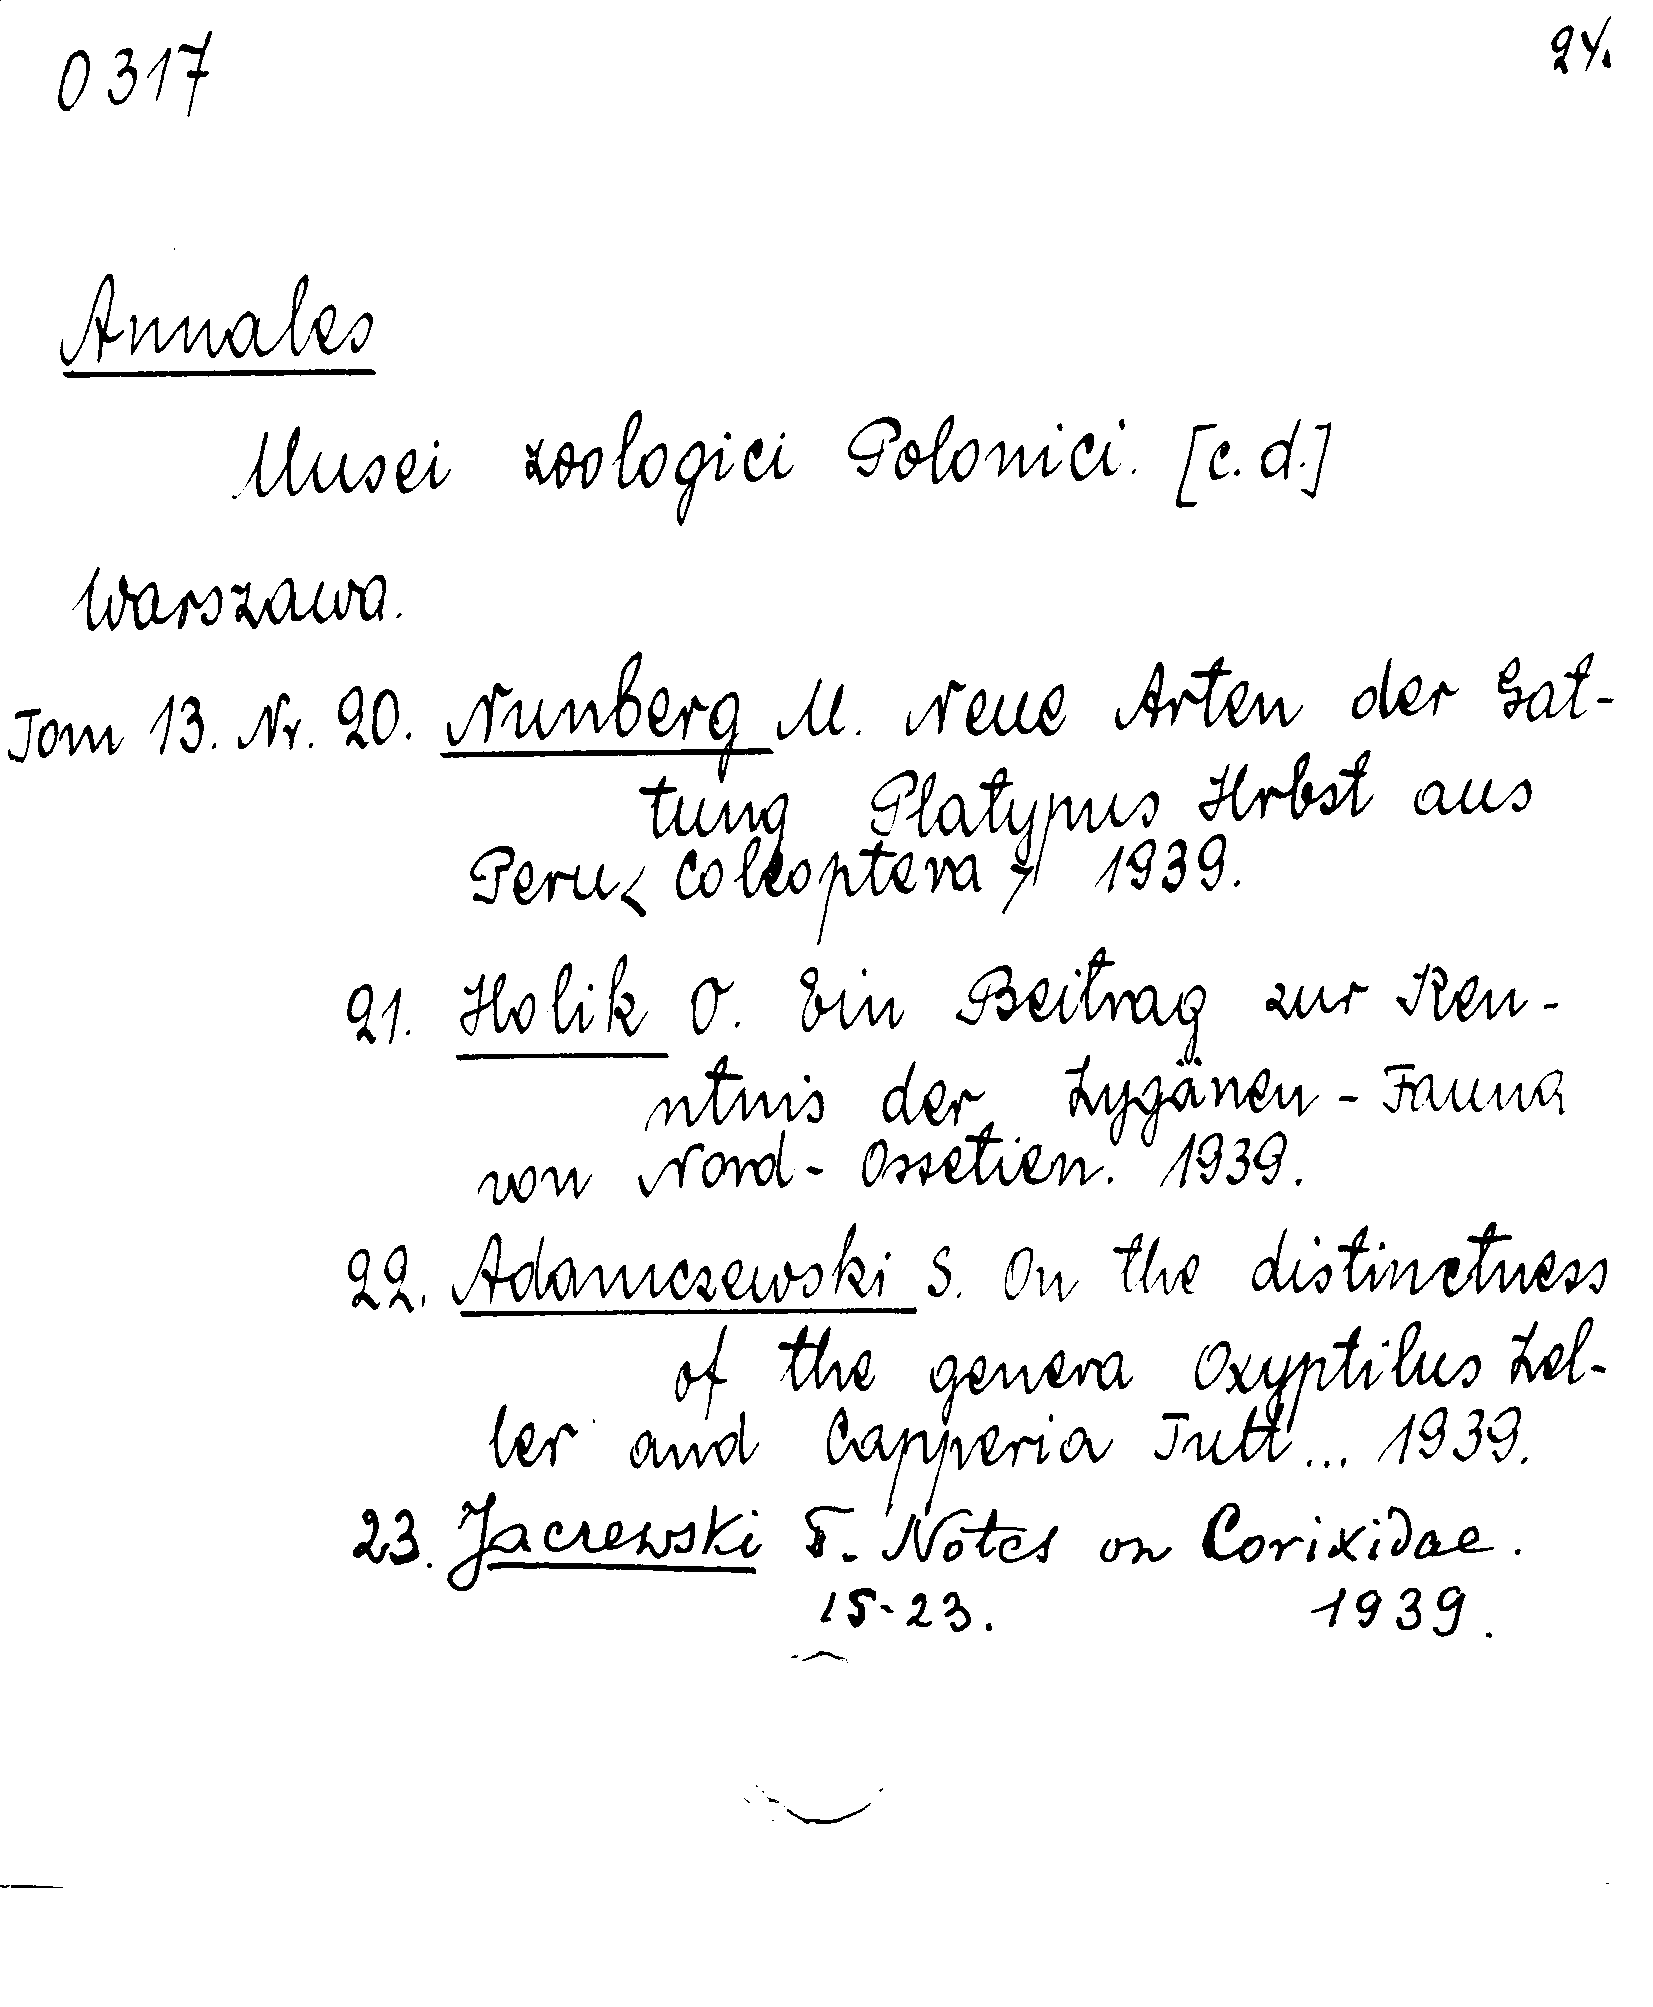 0317
24.
Annales
Musei zoologici Polonici. [c.d.]
Warszawa.
Tom 13. Nr. 20. Nunberg M. Neue Arten der Gat-
tung Platypus Hrbst aus
Peru < Coleoptera > 1939.
21. Holik O. Ein Beitrag zur Ken-
ntnis der Zygänen - Fauna
von Nord - Ossetien. 1939.
22. Adamczewski S. On the distinctness
of the genera Oxyptilus Zel-
ler and Capperia Tutt... 1939.
23. Jaczewski T. Notes on Corixidae.
15-23. 1939.